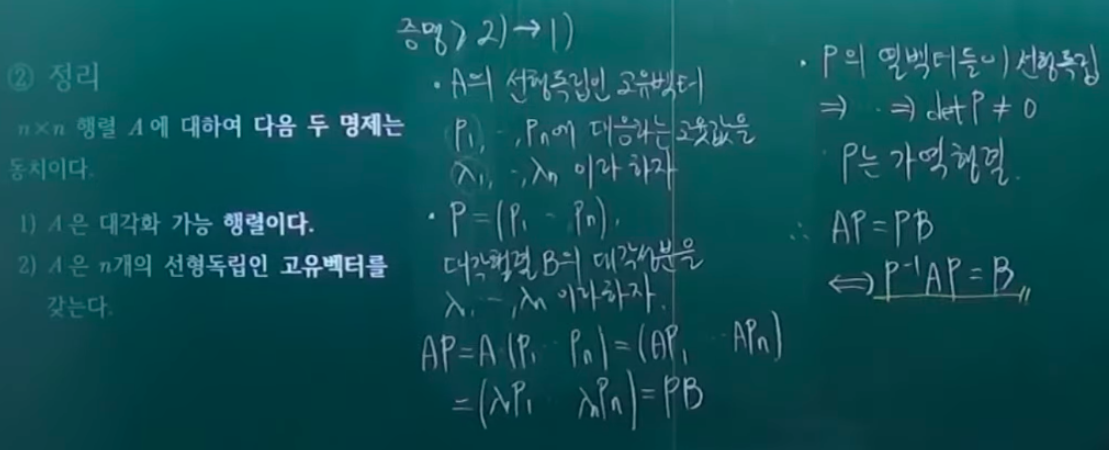 ② 정리
n×n 행렬 A에 대하여 다음 두 명제는
동치이다.
1) A은 대각화 가능 행렬이다.
2) A은 n개의 선형독립인 고유벡터를
갖는다.
증명> 2) → 1)
· A의 선형독립인 고유벡터
P₁, ‥, Pₙ에 대응하는 고윳값을
λ₁, ‥, λₙ 이라 하자
· P = (P₁ ‥ Pₙ),
대각행렬 B의 대각성분을
λ₁ ‥, λₙ 이라하자.
AP = A (P₁ ‥ Pₙ) = (AP₁ ‥ APₙ)
= (λ₁P₁ λₙPₙ) = PB
· P의 열벡터들이 선형독립
⇒ ‥ ⇒ det P ≠ 0
P는 가역행렬.
∴ AP = PB
⇔ P⁻¹AP = B